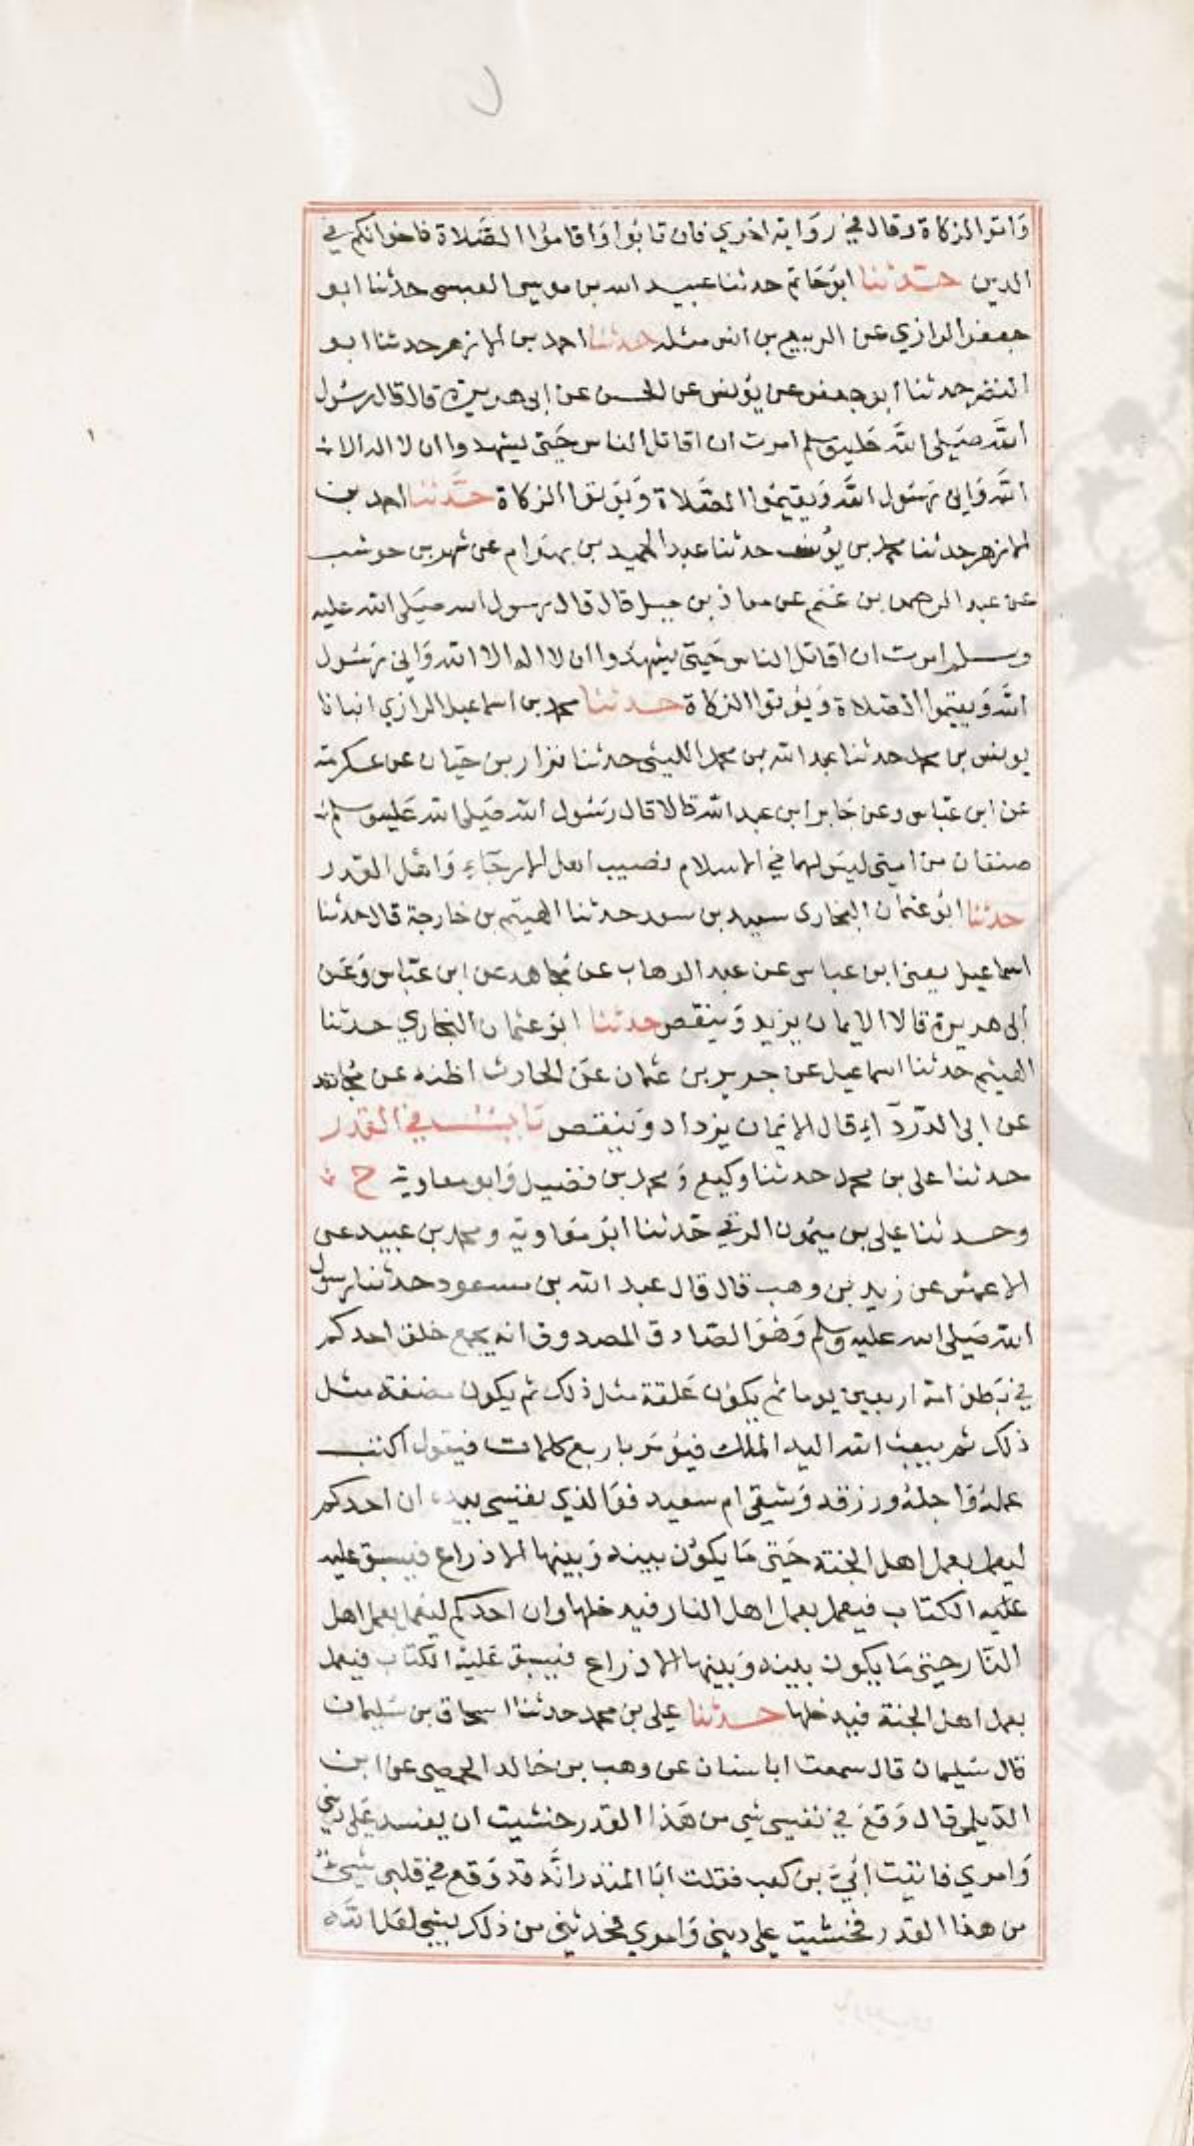 ل
وَاتوا الزكاة وقال في رواية اخري فان تابُوا وَاقاموُا الصَّلاة فاخوانكم في
الدين حدّثنا ابوُحَاتم حدثنا عبيد الله بن موسى العبسي حدثنا ابو
جعفر الرازي عن الربيع بن انس مثله حدثنا احمد بن الازهر حدثنا ابو
النضر حدثنا ابو جعفر عن يوُنس عن الحسن عن ابي هريرة قال قال رسُول
اللّه صَلى اللّه عَليه وسلم امرت ان اقاتل الناس حَتى يشهدوا ان لا اله الا
اللّه وَاني رسُول اللّه وَيقيمُوا الصَّلاة وَيوتوا الزكاة حدَّثنا احمد بن
الازهر حدثنا محمد بن يوُسف حدثنا عبد الحميد بن بهرام عن شهر بن حوشب
عن عبد الرحمن بن غنم عن معاذ بن جبل قال قال رسول الله صَلى الله عليه
وسلم امرت ان اقاتل الناس حَتى يشهدُوا ان لا اله الا الله وَاني رسُول
اللّه وَيقيموا الصلاة وَيوُتوا الزكاة حدثنا محمد بن اسماعيل الرازي انبانا
يونس بن محمد حدثنا عبد الله بن محمد الليثي حدثنا نزار بن حيّان عن عكرمة
عن ابن عبّاس وعن جَابر ابن عبد الله قالا قال رسُول الله صَلى الله عَليه وسلم
صنفان من امتي ليسَ لهما في الاسلام نصيب اهل الارجَاءِ وَاهل القدر
حدثنا ابوُ عثمان البخارى سعيد بن سعد حدثنا الهيثم بن خارجة قال حدثنا
اسماعيل يعنى ابن عياش عن عبد الوهاب عن مُجاهد عن ابن عبّاس وَعن
أبى هريرة قالا الايمان يزيد وَينقص حدثنا ابوُ عثمان البخاري حدثنا
الهيثم حدثنا اسماعيل عن جرير بن عثمان عن الحارث اظنه عن مُجاهد
عن ابى الدّردآءِ قال الايمان يزداد وَينقص بَابٌ في القدر
حدثنا على بن محمد حدثنا وكيع وَ محمد بن فضيل وَابو معاوية ح
وحدثنا على بن ميمُون الرقي حَدثنا ابوُ مَعاوية ومحمد بن عبيد عن
الاعمش عن زيد بن وهب قال قال عبد الله بن مسعود حدثنا رسول
الله صَلى الله عليه وسلم وَهُوَ الصّادق المصدوق انه يجمع خلق احدكم
في بَطن امّه اربعين يوما ثم يكوُن عَلقة مثل ذلك ثم يكون مضغة مثل
ذلك ثم يبعث الله اليه الملك فيوُمر باربع كلمات فيقول اكتب
عملهُ وَاجلهُ ورزقه وَشقي ام سعيد فوَالذي نفسي بيده ان احدكم
ليعمل بعمل اهل الجنة حَتى مَا يكوُن بينه وَبينها الا ذراع فيسبق عليه
عَليه الكتاب فيعمل بعمل اهل النار فيدخلها وان احدكم ليعمل بعمل اهل
النّار حتى مَا يكون بينه وَبينها الا ذراع فيسبق عَليه الكتاب فيعمل
بعمل اهل الجنة فيدخلها حدثنا على بن محمد حدثنا اسحاق بن سُليمان
قال سُليمان قال سمعت ابا سنان عن وهب بن خالد الحمصي عن ابن
الدّيلمى قال وَقعَ في نفسي شي من هَذا القدر خشيت ان يفسد عَلى ديني
وَامري فاتيت اُبيّ بن كعب فقلت ابَا المنذر انَّه قد وَقع في قلبي شيئ
من هذا القدر فخشيت على ديني وَامري فحدثني من ذلك بشي لعَل اللّه